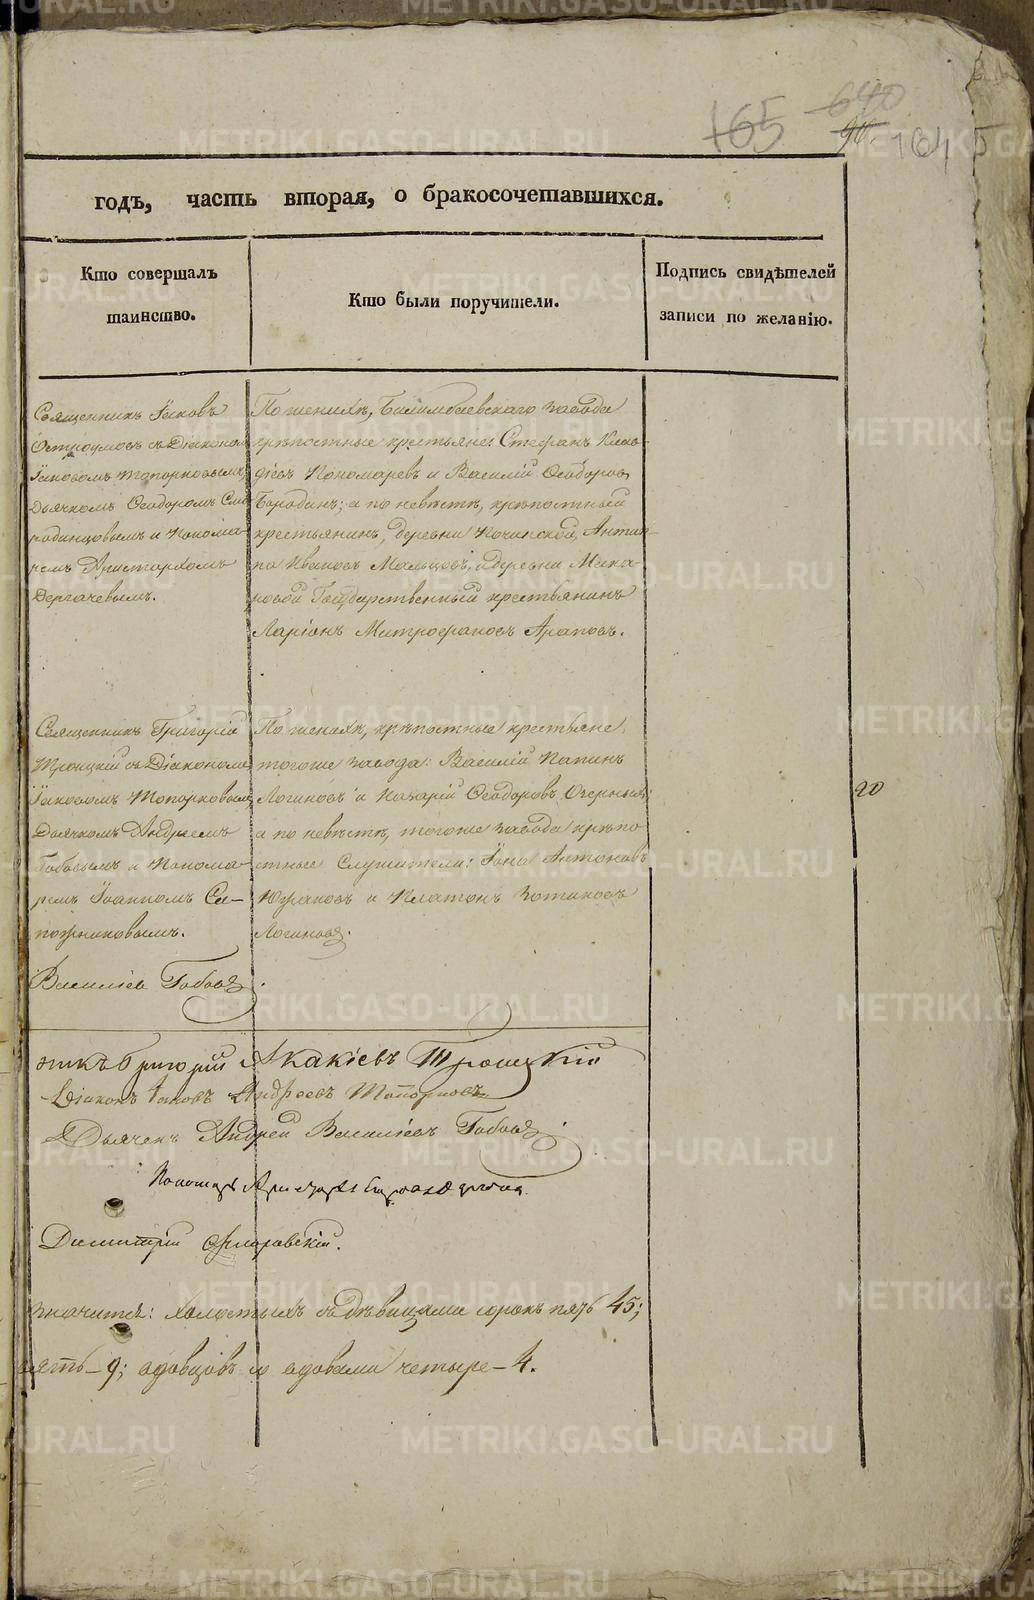 165 640
90. 164
годъ, часть вторая, о бракосочетавшихся.
Кто совершалъ
таинство.
Кто были поручители.
Подпись свидѣтелей
записи по желанію.
Священникъ Іаковъ
Остроумовъ съ Діакономъ
Іаковомъ Топорковымъ,
Дьячкомъ Ѳеодоромъ Смо
родинцовымъ и Понома-
ремъ Аристархомъ
Дергачевымъ.
По женихѣ, Билимбаевскаго завода
крѣпостные крестьяне: Стефанъ Клав-
діевъ Пономаревъ и Василій Ѳеодоровъ
Бородинъ; а по невѣстѣ, крѣпостный
крестьянинъ, деревни Починской, Антип-
па Ивановъ Мальцовъ, и деревни Мака-
ровой Государственный крестьянинъ
Ларіонъ Митрофановъ Араповъ.
Священникъ Григорій
Троицкій съ Діакономъ
Іаковомъ Топорковымъ,
Дьячкомъ Андреемъ
Бабовымъ и Понома-
ремъ Іоанномъ Са-
пожниковымъ.
По женихѣ, крѣпостные крестьяне,
тогоже завода: Василій
Логиновъ и Назарій Ѳеодоровъ
а по невѣстѣ, тогоже завода крѣпо
стные Служители: Іона Антоновъ
Южаковъ и Платонъ Зотиковъ
Логиновъ.
20
Василіевъ Бабовъ.
никъ Григорій Акакіевъ Троицкій
Діаконъ Іаковъ Андреевъ Топорковъ
Дьячекъ Андрей Василіевъ Бабовъ.
Пономарь
Димитрій
значится: холостыхъ съ дѣвицами сорокъ пять 45;
вять - 9; вдовцовъ со вдовами четыре - 4.
METRIKI.GASO-URAL.RU